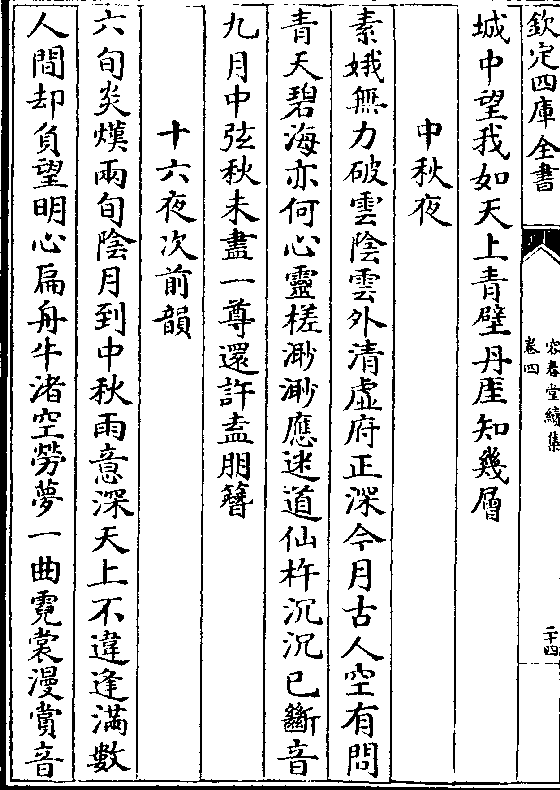 欽定四庫全書
容春堂續集
卷四
二十四
城中望我如天上青壁丹厓知幾層
中秋夜
素娥無力破雲陰雲外清虛府正深今月古人空有問
青天碧海亦何心靈槎渺渺應迷道仙杵沉沉已斷音
九月中弦秋未盡一尊還許盍朋簪
十六夜次前韻
六旬炎熯兩旬陰月到中秋雨意深天上不違逢滿數
人間却負望明心扁舟牛渚空勞夢一曲霓裳漫賞音